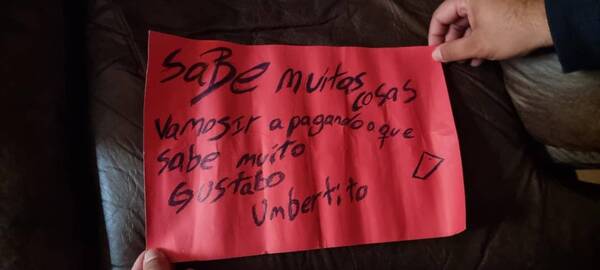 SaBe muitas
cosas
Vamosir apagando o que
sabe muito
Gustabo
Umbertito